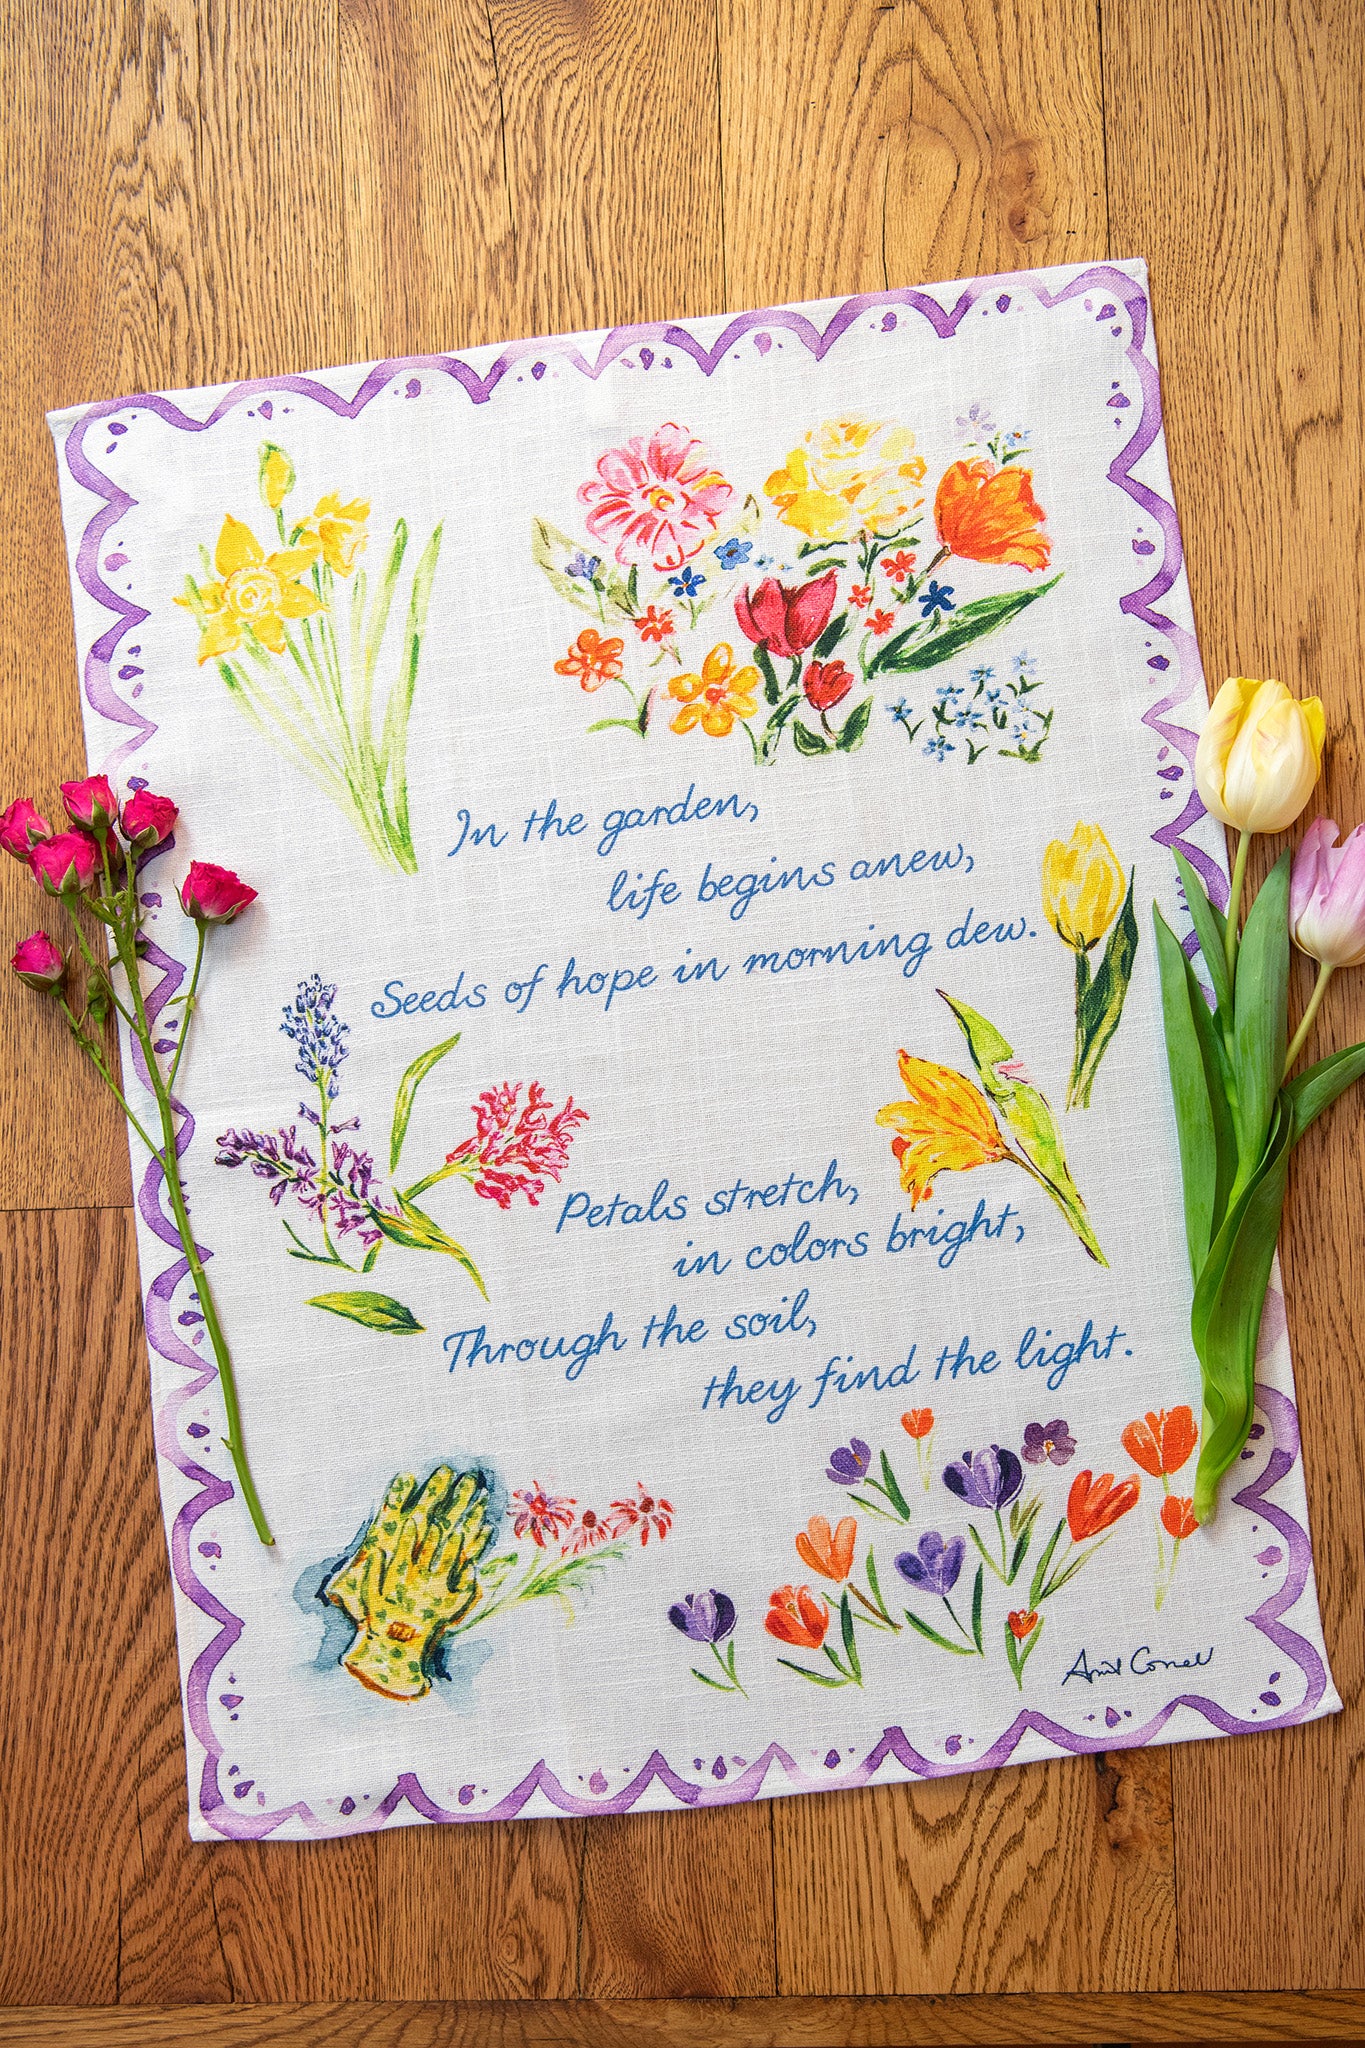 In the garden,
life begins anew,
Seeds of hope in morning dew.
Petals stretch,
in colors bright,
Through the soil,
they find the light.